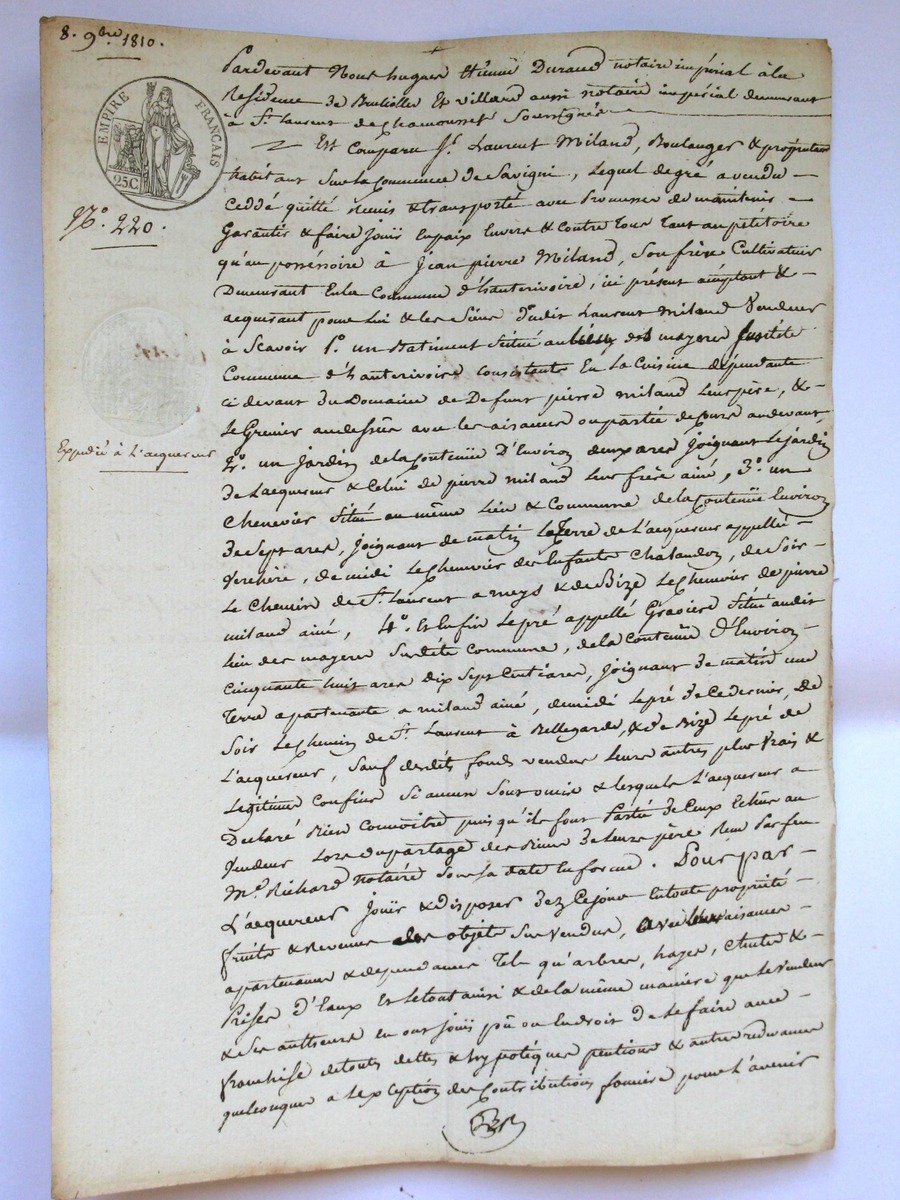 8. 9bre 1810.
EMPIRE FRANÇAIS
25 C.
N° 220.
Expedié à L'acquereur
Pardevant Nous hugues Etienne Durand notaire impérial à la
Residence de Brullioles Et Villard aussi notaire impérial demeurant
à St. Laurent de Chamousset Soussignés
Est Comparu Sr. Laurent Miland, Boulanger & propriétaire
habitant Sur la Commune de Savigni, Lequel de gré a vendu
Ceddé quitté remis & transporté avec Promesse de maintenir
Garantir & faire Jouir En paix Envers & Contre Tous Tant au petitoire
qu'au possessoire à Jean pierre Miland, Son frère Cultivateur
Demeurant En la Commune d'hauterivoire, ici présent acceptant &
acquerant pour Lui & les Siens dudit Laurent miland Vendeur
à Scavoir 1°. un Batiment Situé au des mayeres Susdite
Commune d'hauterivoire Consistente En La Cuisine dépendante
Ci devant Du Domaine de Defunt pierre miland Leur père, &
Le Grenier au dessus avec les aisances ou partie de Cour au devant
2°. un Jardin de la Contenüe D'Environ deux ares Joignant Le jardin
De Lacquereur & Celui de pierre miland Leur frère ainé, 3°. un
Chenevier Situé au même Lieu & Commune de la Contenüe Environ
De Sept ares, Joignant de matin La Terre de L'acquereur appellée
Verchère, de midi Le Chenevier des Enfants Chalandon, de Soir
Le Chemin de St. Laurent a meys & de Bize Le Chenevier de pierre
miland ainé, 4°. Et Enfin Le pré appellé Graviere Situé audit
Lieu des mayeres Susdite Commune, de la Contenüe D'Environ
Cinquante huit ares dix Sept Centiares, Joignant de matin une
Terre apartenante a miland ainé, de midi Le pré de Ce dernier, de
Soir Le Chemin de St. Laurent à Bellegarde, & de Bize Le pré de
L'acquereur, Sauf desdits fonds vendus Leurs autres plus Vrais &
Legitimes Confins Si aucun Sont omis & lesquels L'acquereur a
Declaré Bien Connoitre puis qu'ils font Partie de Ceux Echus au
Vendeur Lors du partage des Biens de Leur père Reçu Par feu
Me. Richard notaire Sous Sa date En forme. Pour par
L'acquereur Jouir & Disposer Dez Ce jour En toute propriété
fruits & Revenus des objets Sus Vendus, avec Leurs aisances
apartenances & dependances Tels qu'arbres, hayes, &
Prises d'Eaux Et Le tout ainsi & de la même manière que Le Vendeur
& Ses autheurs En ont Joui pû ou Eu droit de Le faire avec
franchise de touts dettes & hypotèques pentions & autres redevances
quelconques a L'exception des Contributions foncière pour L'avenir